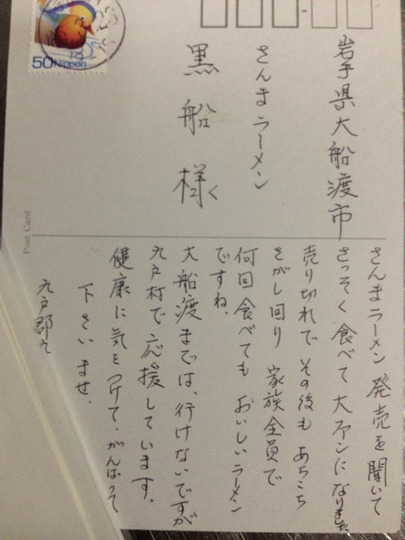 50 Nippon
岩手県大船渡市
さんまラーメン
黒船様
Post Card
さんまラーメン発売を聞いて
さっそく食べて大ファンになりました
売り切れでその後もあちこち
さがし回り家族全員で
何回食べてもおいしいラーメン
ですね。
大船渡までは、行けないですが
九戸村で応援しています。
健康に気をつけて、がんばって
下さいませ。
九戸郡